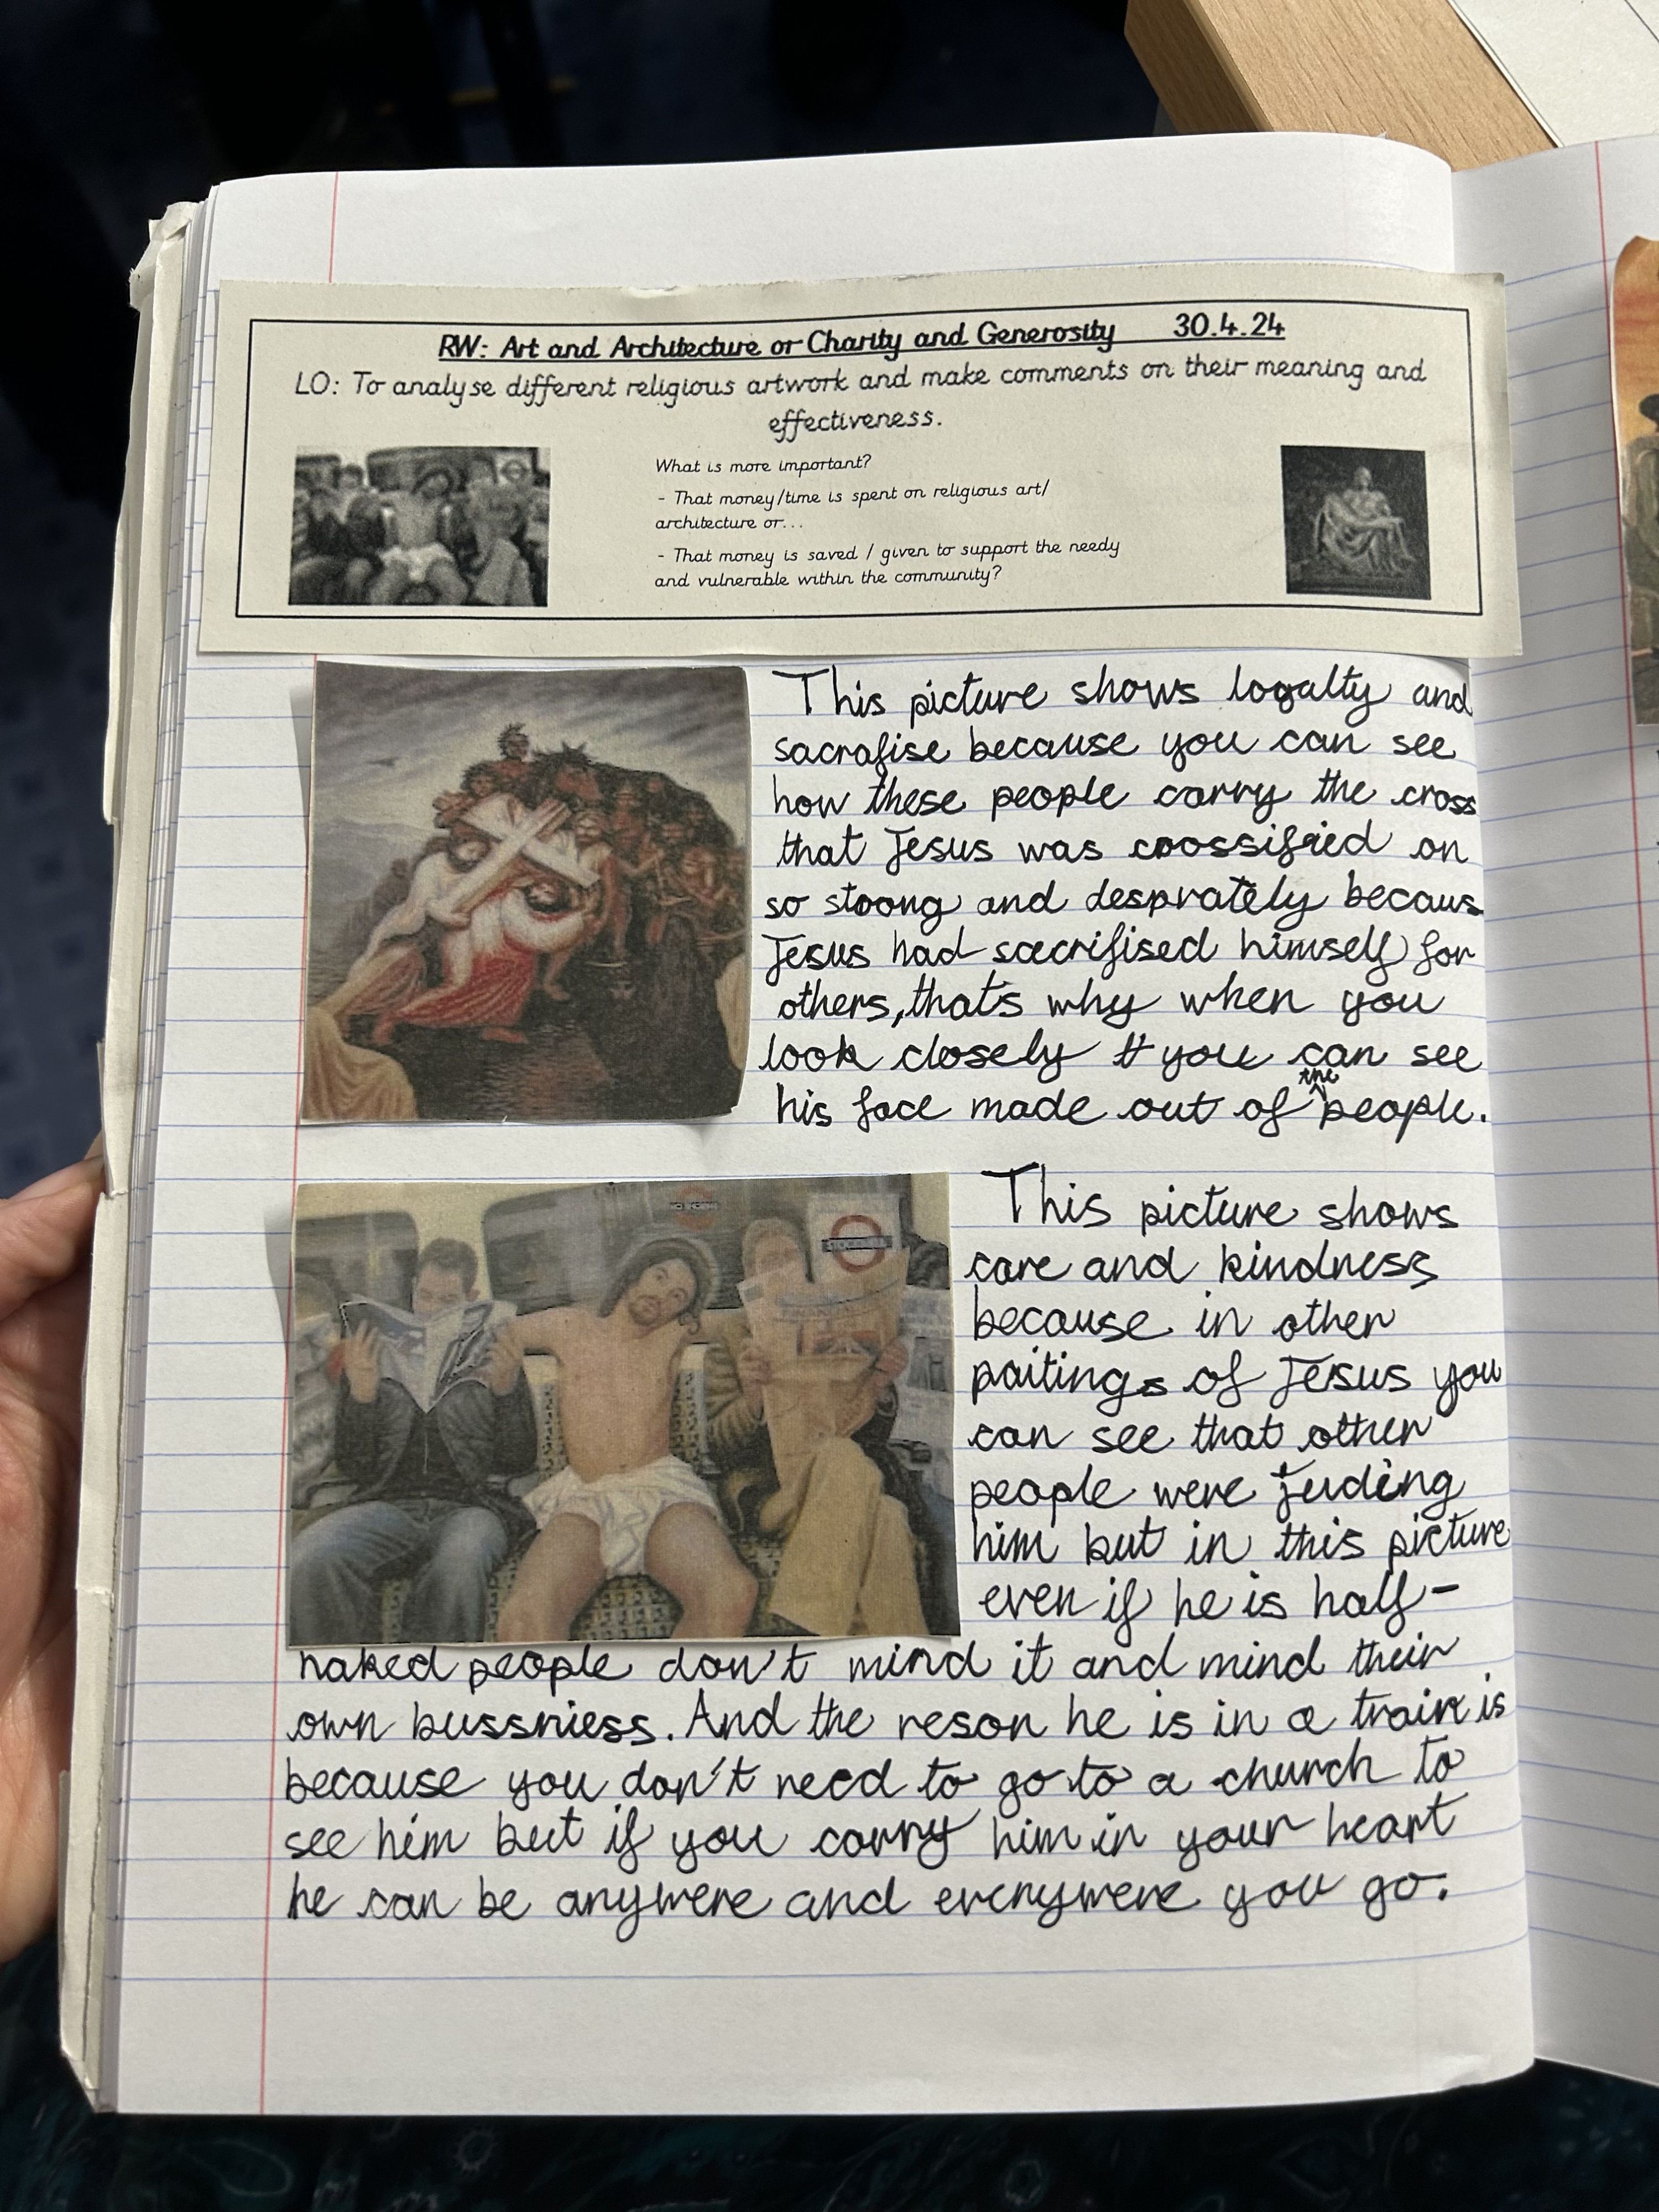 RW: Art and Architecture or Charity and Generosity 30.4.24
LO: To analyse different religious artwork and make comments on their meaning and
effectiveness.
What is more important?
- That money/time is spent on religious art/
architecture or...
- That money is saved / given to support the needy
and vulnerable within the community?
This picture shows loyalty and
sacrafise because you can see
how these people carry the cross
that Jesus was crossified on
so stroong and desprately becaus
Jesus had sacrifised himself for
others, that's why when you
look closely you can see
his face made out of the people.
This picture shows
care and kindness
because in other
paitings of Jesus you
can see that other
people were juding
him but in this picture
even if he is half-
naked people don't mind it and mind their
own bussniess. And the reson he is in a train is
because you don't need to go to a church to
see him but if you carry him in your heart
he can be anywere and everywere you go.